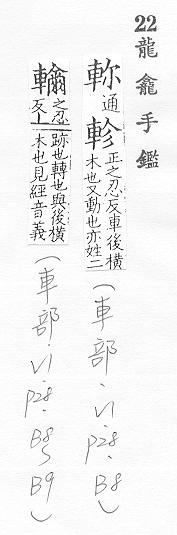 22龍龕手鑑
軫通軫正之忍反車後橫木也又動也亦姓二
(車部、V1、P28、B8)
之忍反上跡也轉也與後橫木也見經音義
(車部、V1、P28、B8~B9)